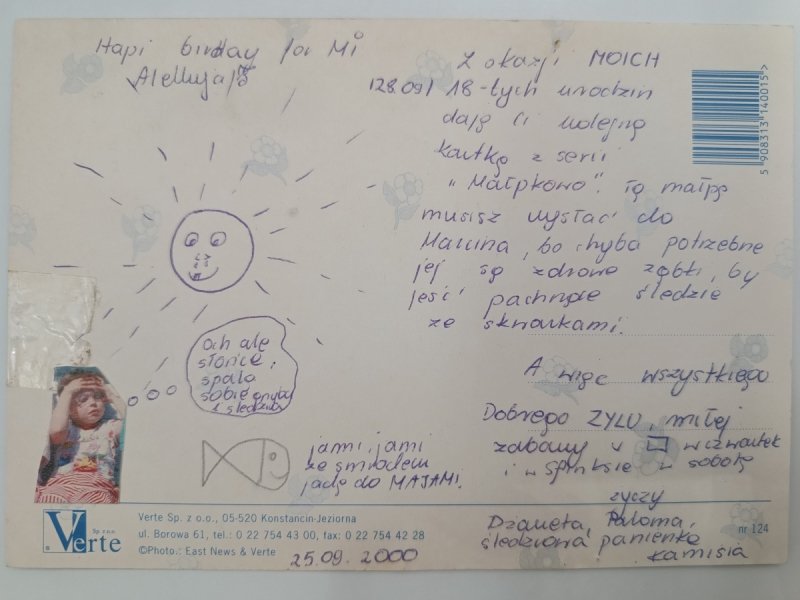 Hapi birdday for Mi
Alellujaß
Z okazji MOICH
/28.09/ 18-tych urodzin
daję Ci kolejną
kartkę z serii
"Małpkowo". Tą małpę
musisz wysłać do
Marcina, bo chyba potrzebne
jej są zdrowe ząbki, by
jeść pachnące śledzie
ze skwarkami.
A więc wszystkiego
Dobrego ZYLU, miłej
zabawy v w czwartek
i w Sphinksie w sobotę
życzy
Dżaneta, Paloma,
śledziowa panienka
Kamisia
Och ale
słońce,
spalę
sobie
i śledzika
jami, jami
ze smrodem
jadę do MAJAMI.
5 908313 140015>
Verte Sp. z o.o.
Verte Sp. z o.o., 05-520 Konstancin-Jeziorna
ul. Borowa 61, tel.: 0 22 754 43 00, fax: 0 22 754 42 28
©Photo.: East News & Verte
nr 124
25.09.2000